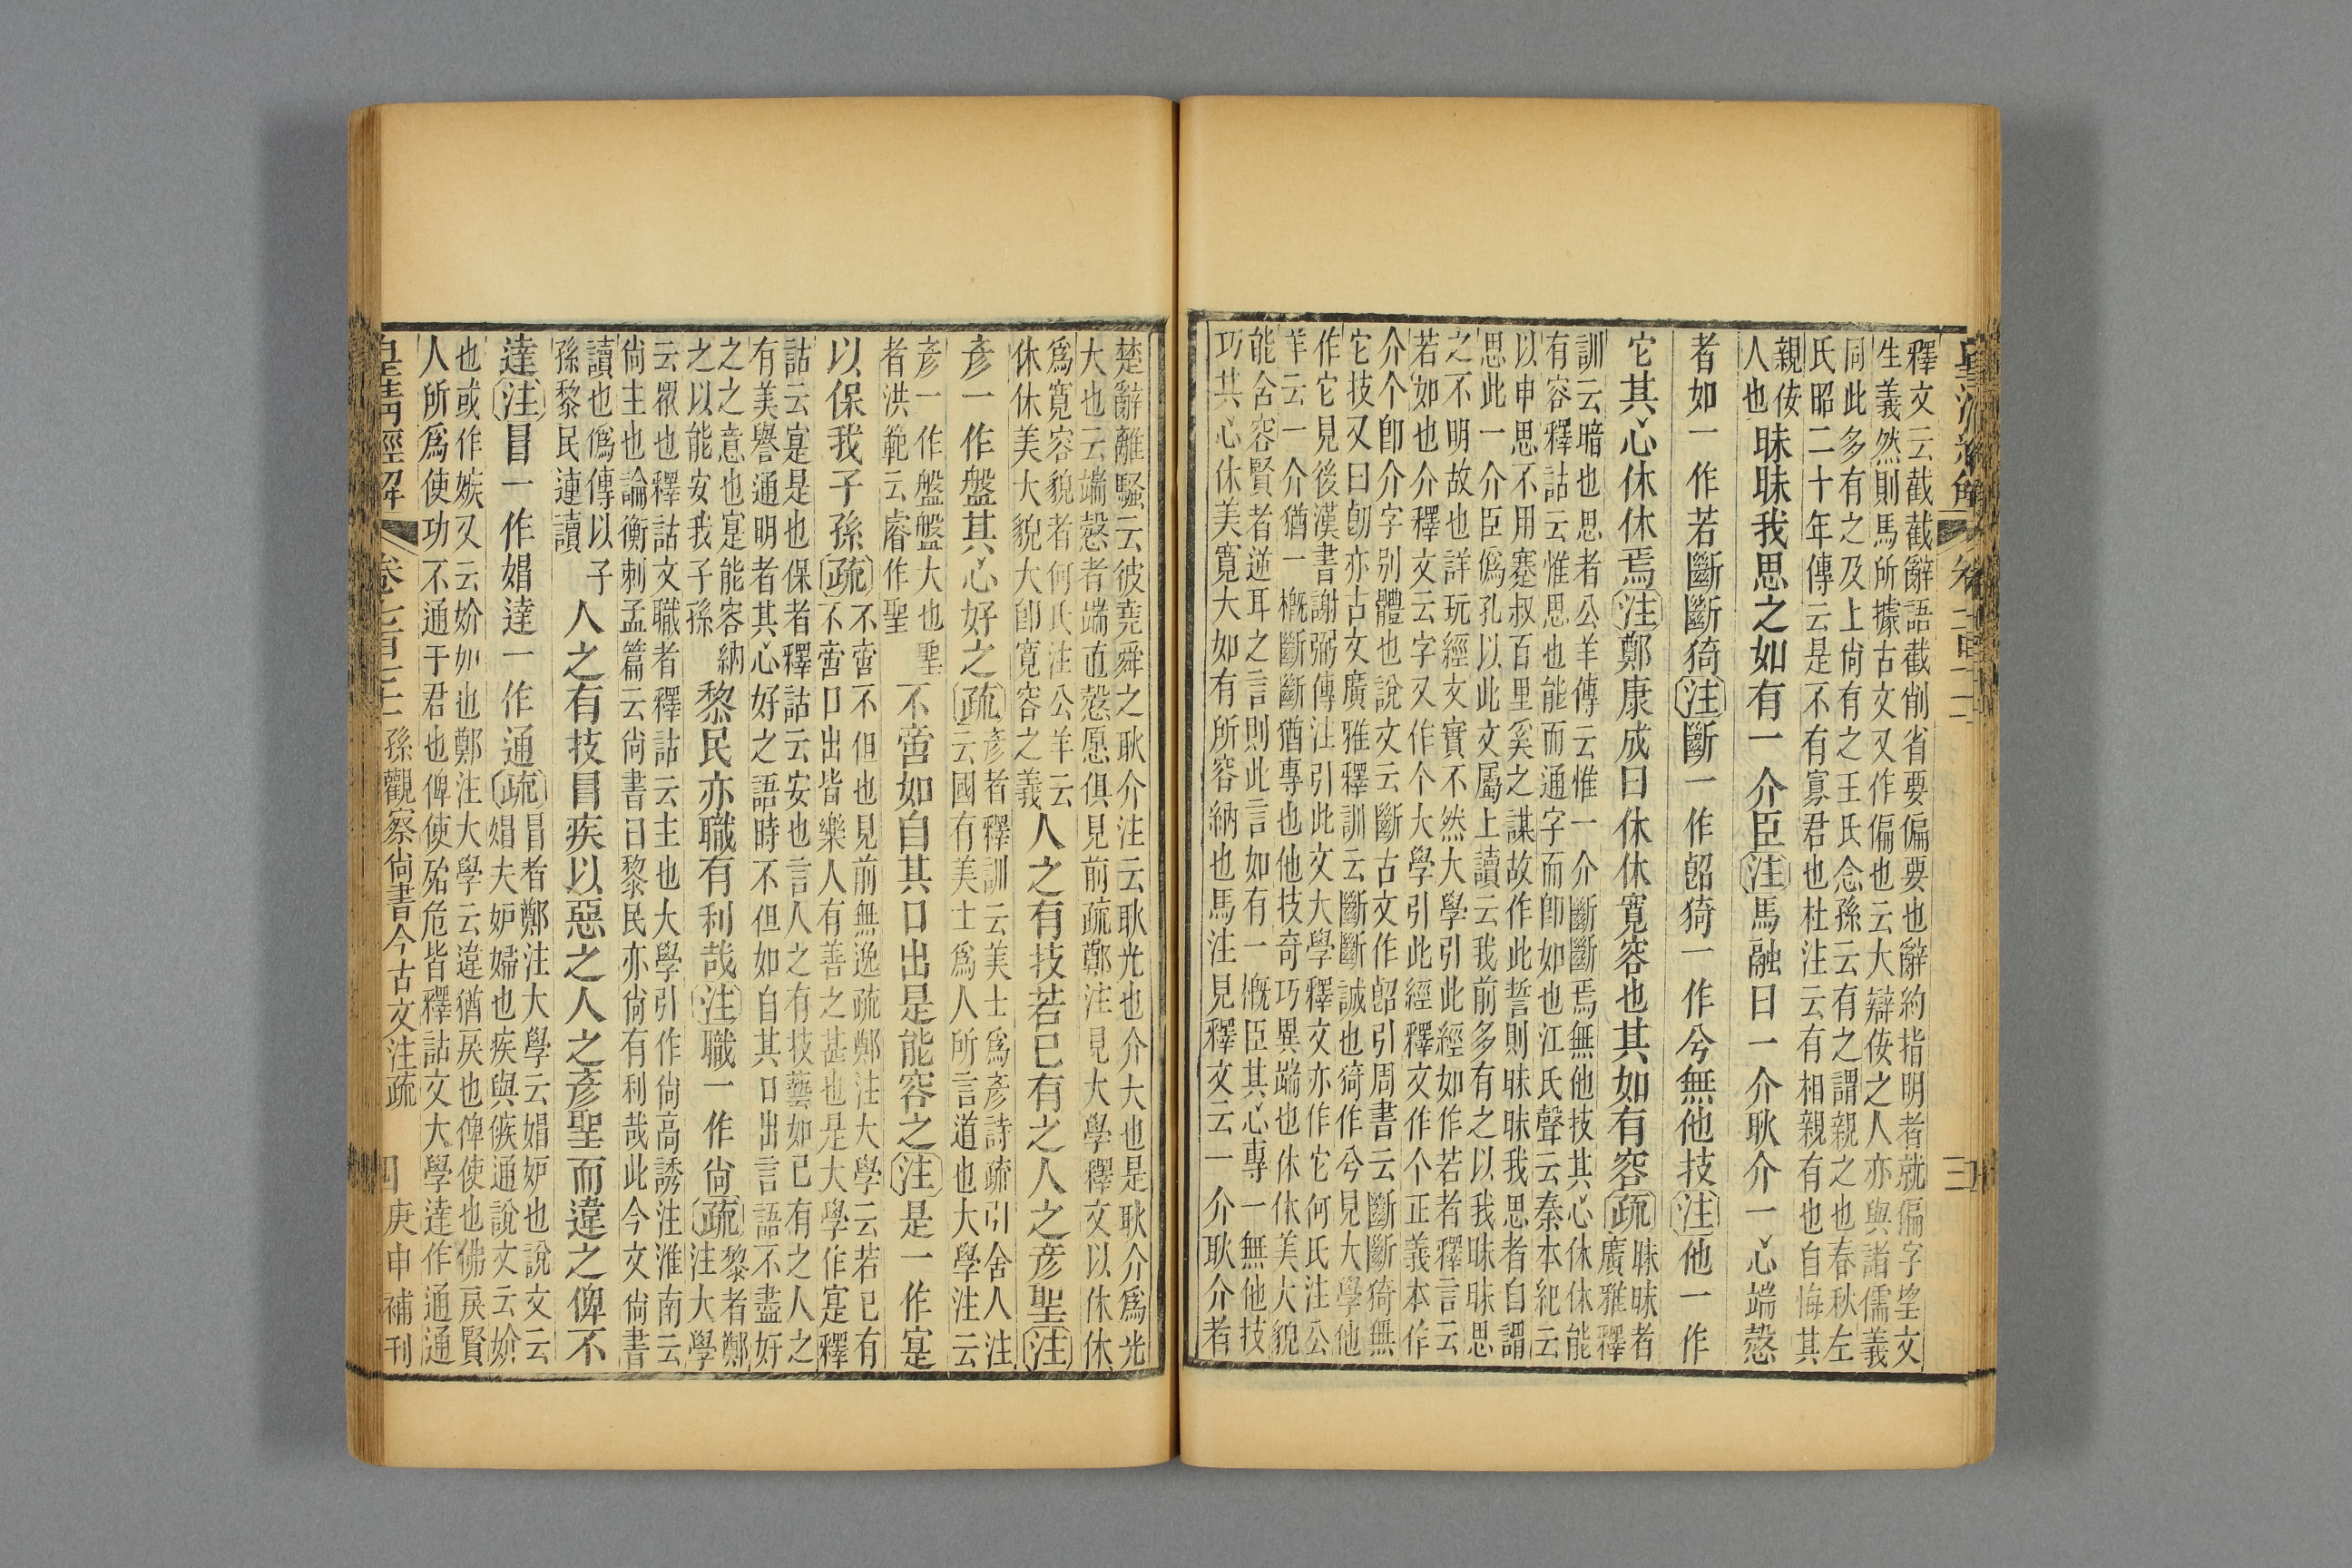 釋文云截截辭語截削省要偏要也辭約指明者就偏字望文
生義然則馬所據古文又作偏也云大辯佞之人亦與諸儒義
同此多有之及上尙有之王氏念孫云有之謂親之也春秋左
氏昭二十年傳云是不有寡君也杜注云有相親有也自悔其
親佞
人也
昧昧我思之如有一介臣注馬融曰一介耿介一心端慤
者如一作若斷斷猗注斷一作㫁猗一作兮無他技注他一作
它其心休休焉注鄭康成曰休休寬容也其如有容疏
昧昧者
廣雅釋
訓云暗也思者公羊傳云惟一介斷斷焉無他技其心休休能
有容釋詁云惟思也能而通字而卽如也江氏聲云秦本紀云
以申思不用蹇叔百里奚之謀故作此誓則昧昧我思者自謂
思此一介臣僞孔以此文屬上讀云我前多有之以我昧昧思
之不明故也詳玩經文實不然大學引此經如作若者釋言云
若如也介釋文云字又作个大學引此經釋文作个正義本作
介个卽介字別體也說文云斷古文作㫁引周書云斷斷猗無
它技又曰亦古文廣雅釋訓云斷斷誠也猗作兮見大學他
作它見後漢書謝弼傳注引此文大學釋文亦作它何氏注公
羊云一介猶一槪斷斷猶專也他技奇巧異端也休休美大貌
能含容賢者逆耳之言則此言如有一槪臣其心專一無他技
巧其心休美寬大如有所容納也馬注見釋文云一介耿介者
皇淸經解 三
楚辭離騷云彼堯舜之耿介注云耿光也介大也是耿介爲光
大也云端慤者端直慤愿俱見前疏鄭注見大學釋文以休休
爲寬容貌者何氏注公羊云
休休美大貌大卽寬容之義
人之有技若已有之人之彥聖注
彥一作盤其心好之疏
彥者釋訓云美士爲彥詩疏引舍人注
云國有美士爲人所言道也大學注云
彥一作盤盤大也聖
者洪範云睿作聖
不啻如自其口出是能容之注是一作寔
以保我子孫疏
不啻不但也見前無逸疏鄭注大學云若已有
不啻口出皆樂人有善之甚也是大學作寔釋
詁云寔是也保者釋詁云安也言人之有技藝如已有之人之
有美譽通明者其心好之語時不但如自其口出言語不盡好
之之意也寔能容納
之以能安我子孫
黎民亦職有利哉注職一作尙疏
黎者鄭
注大學
云衆也釋詁文職者釋詁云主也大學引作尙高誘注淮南云
尙主也論衡刺孟篇云尙書曰黎民亦尙有利哉此今文尙書
讀也僞傳以子
孫黎民連讀
人之有技冒疾以惡之人之彥聖而違之俾不
達注冒一作媢達一作通疏
冒者鄭注大學云媢妒也說文云
媢夫妒婦也疾與㑵通說文云妎
也或作嫉又云妎妒也鄭注大學云違猶戾也俾使也佛戾賢
人所爲使功不通于君也俾使殆危皆釋詁文大學達作通通
皇淸經解 卷七百七十二 孫觀察尙書今古文注疏 四 庚申補刊